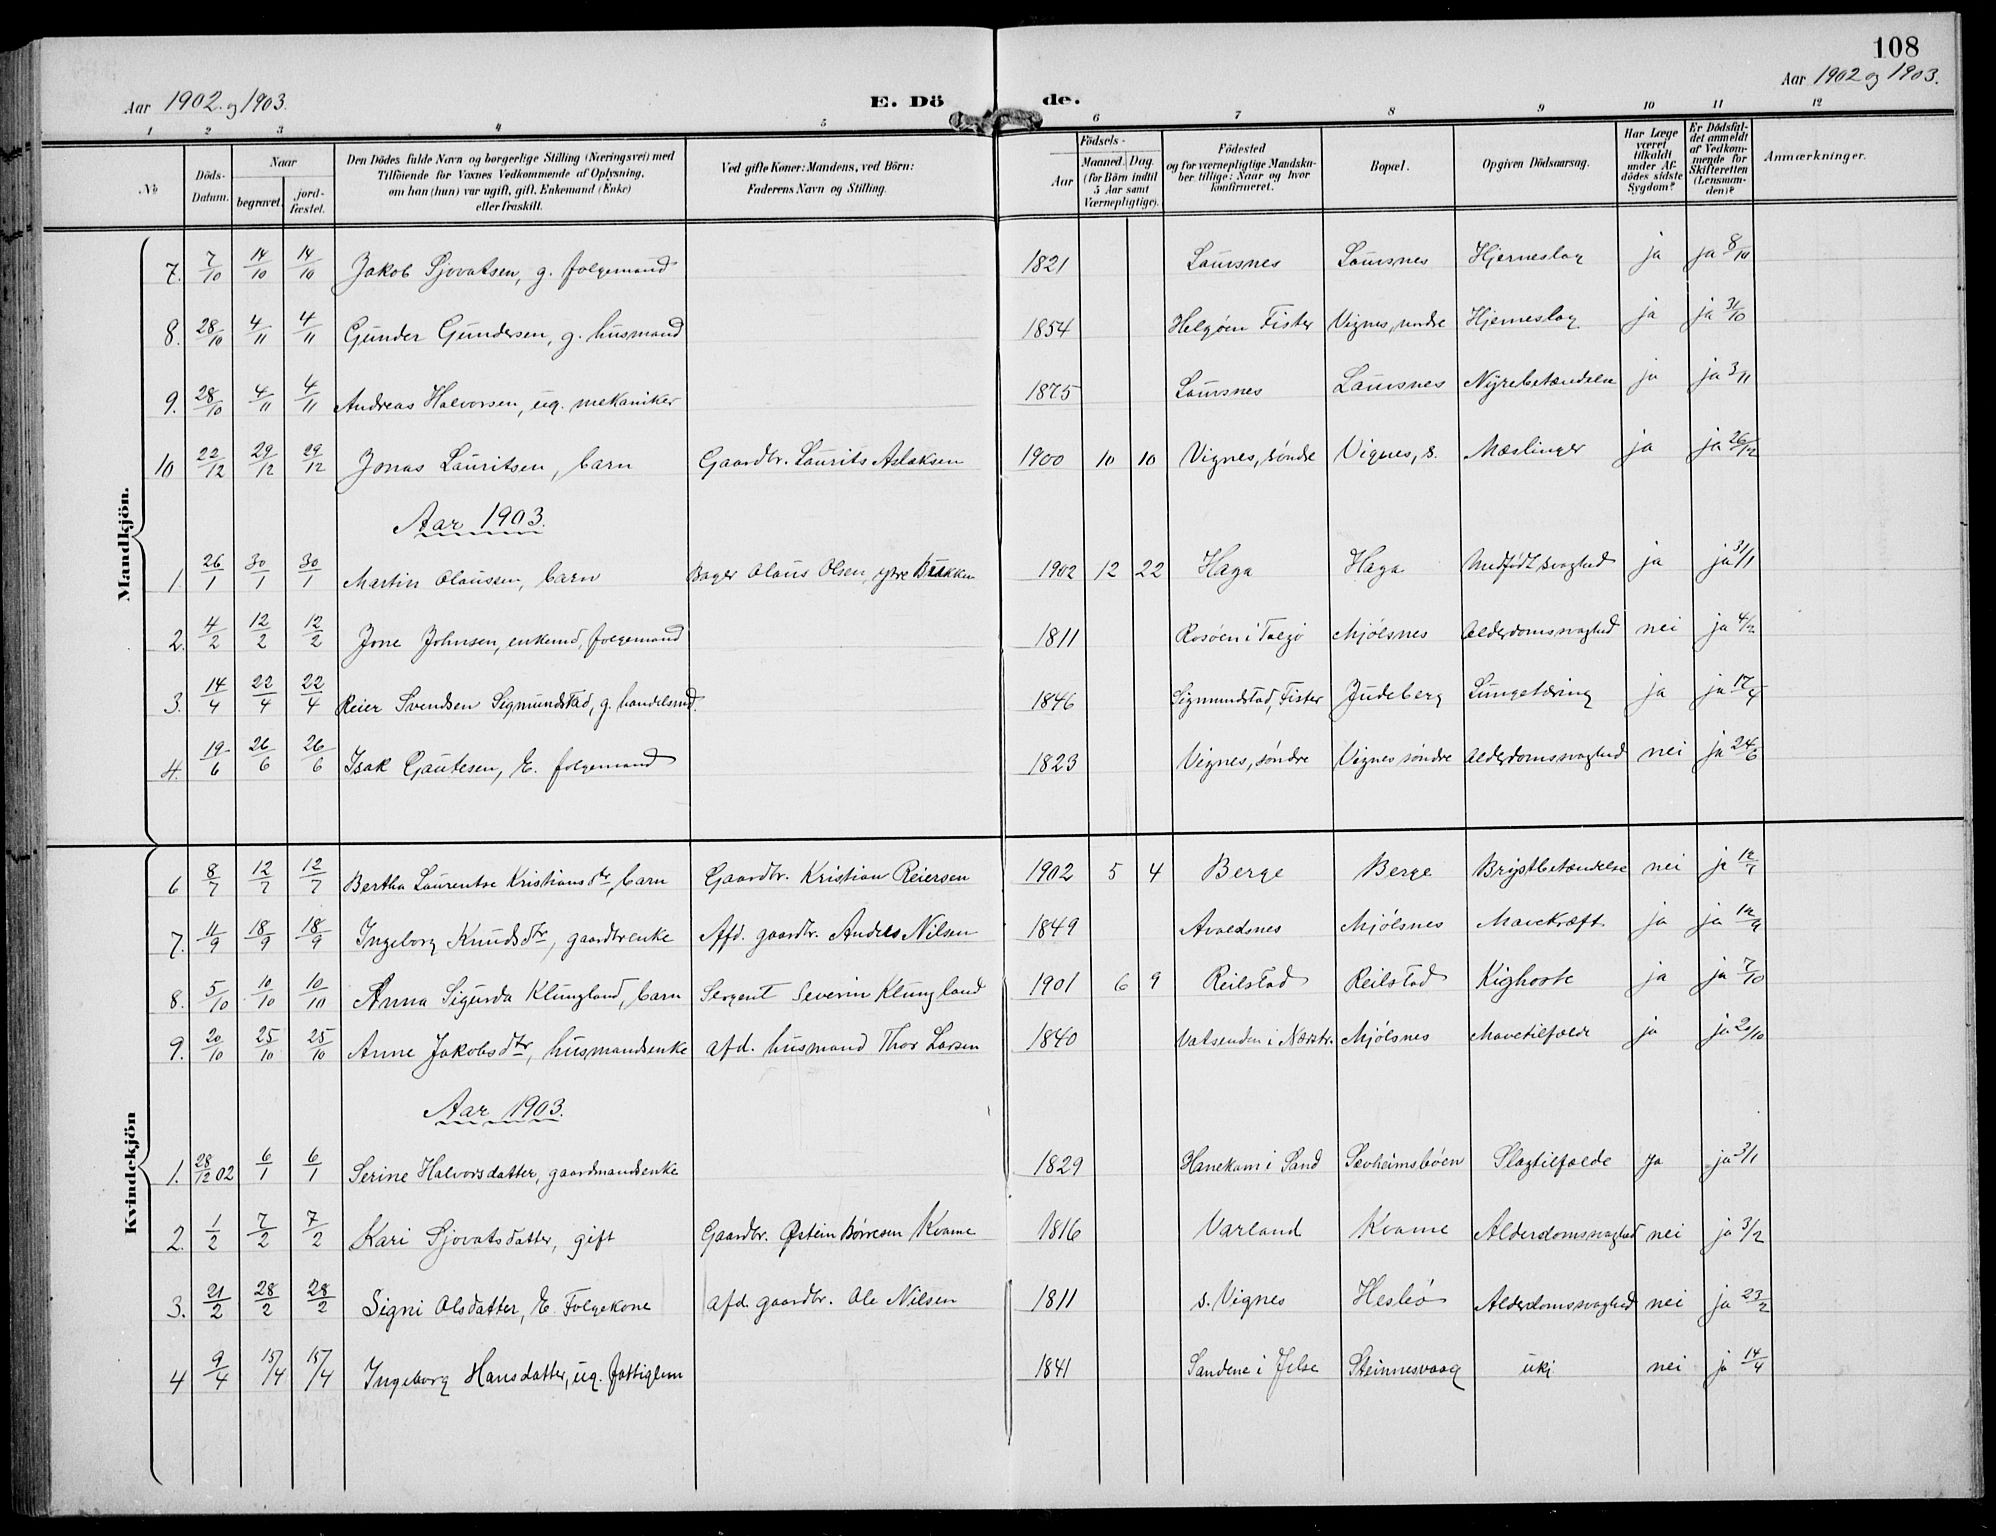 108
Aar 1902 og 1903.
Aar 1902 og 1903.
E. Dö de.
1 2 3 4 5 6 7 8 9 10 11 12
No
Döds-Datum.
Naar begravet. jordfæstet.
Den Dödes fulde Navn og borgerlige Stilling (Næringsvei) med Tilföiende for Voxnes Vedkommende af Oplysning, om han (hun) var ugift, gift, Enkemand (Enke) eller fraskilt.
Ved gifte Koner: Mandens, ved Börn: Faderens Navn og Stilling.
Födsels- Aar Maaned. Dag. (for Börn indtil 5 Aar samt Værnepligtige).
Födested og for værnepligtige Mandskaber tillige: Naar og hvor konfirmeret.
Bopæl.
Opgiven Dödsaarsag.
Har Læge været tilkaldt under Afdödes sidste Sygdom?
Er Dödsfaldet anmeldt af Vedkommende for Skifteretten (Lensmanden)?
Anmærkninger.
Mandkjön.
7. 7/10 14/10 14/10 Jakob Sjovatsen, g. folgemand 1821 Lauvsnes Lauvsnes Hjerneslag ja ja 8/10
8. 28/10 4/11 4/11 Gunder Gundersen, g. husmand 1854 Helgøen Fister Vignes, nndre Hjerneslag ja ja 31/10
9. 28/10 4/11 4/11 Andreas Halvorsen, ug. mekaniker 1875 Lauvsnes Lauvsnes Nyrebetændelse ja ja 3/11
10 22/12 29/12 29/12 Jonas Lauritsen, barn Gaardbr. Laurits Aslaksen 1900 10 10 Vignes, søndre Vignes, s. Mæslinger ja ja 26/12
Aar 1903.
1. 26/1 30/1 30/1 Martin Olausen, barn Bager Olaus Olsen, ytre 1902 12 22 Haga Haga Medfødt svaghed ja ja 31/1
2. 4/2 12/2 12/2 Jone Johnsen, enkemd, folgemand 1811 Rosøen i Talgø Mjølsnes Alderdomssvaghed nei ja 4/2
3. 14/4 22/4 22/4 Reier Svendsen Sigmundstad, g. handelsmd. 1846 Sigmundstad, Fister Judeberg Lungetæring ja ja 17/4
4. 19/6 26/6 26/6 Isak Gautesen, E. folgemand 1823 Vignes, søndre Vignes søndre Alderdomssvaghed nei ja 24/6
Kvindekjön
6 8/7 12/7 12/7 Bertha Laurentse Kristiansdtr, barn Gaardbr. Kristian Reiersen 1902 5 4 Berge Berge Brystbetændelse nei ja 12/7
7. 11/9 18/9 18/9 Ingeborg Knudsdtr, gaardbrenke Afd. gaardbr. Anders Nilsen 1849 Avaldsnes Mjølsnes Mavekræft ja ja 12/9
8. 5/10 10/10 10/10 Anna Sigurda Klungland, barn Sergent Severin Klungland 1901 6 9 Reilstad Reilstad Kighoste ja ja 7/10
9. 20/10 25/10 25/10 Anne Jakobsdtr, husmandsenke afd. husmand Thor Larsen 1840 Vatsenden i Nærstr. Mjølsnes Mavetilfælde ja ja 20/10
Aar 1903.
1. 28/12 02 6/1 6/1 Serine Halvorsdatter, gaardmandsenke 1829 Hanekam i Sand Sævheimsbøen Slagtilfælde ja ja 3/1
2. 1/2 7/2 7/2 Kari Sjovatsdatter, gift Gaardbr. Østein Børresen Kvame 1816 Varland Kvame Alderdomssvaghed nei ja 3/2
3. 21/2 28/2 28/2 Signi Olsdatter, E. Folgekone afd. gaardbr. Ole Nilsen 1811 s. Vignes Hesbø Alderdomssvaghed nei ja 23/2
4 9/4 15/4 15/4 Ingeborg Hansdatter, ug. fattiglem 1841 Sandene i Jelse Steinnesvaag nei ja 14/4